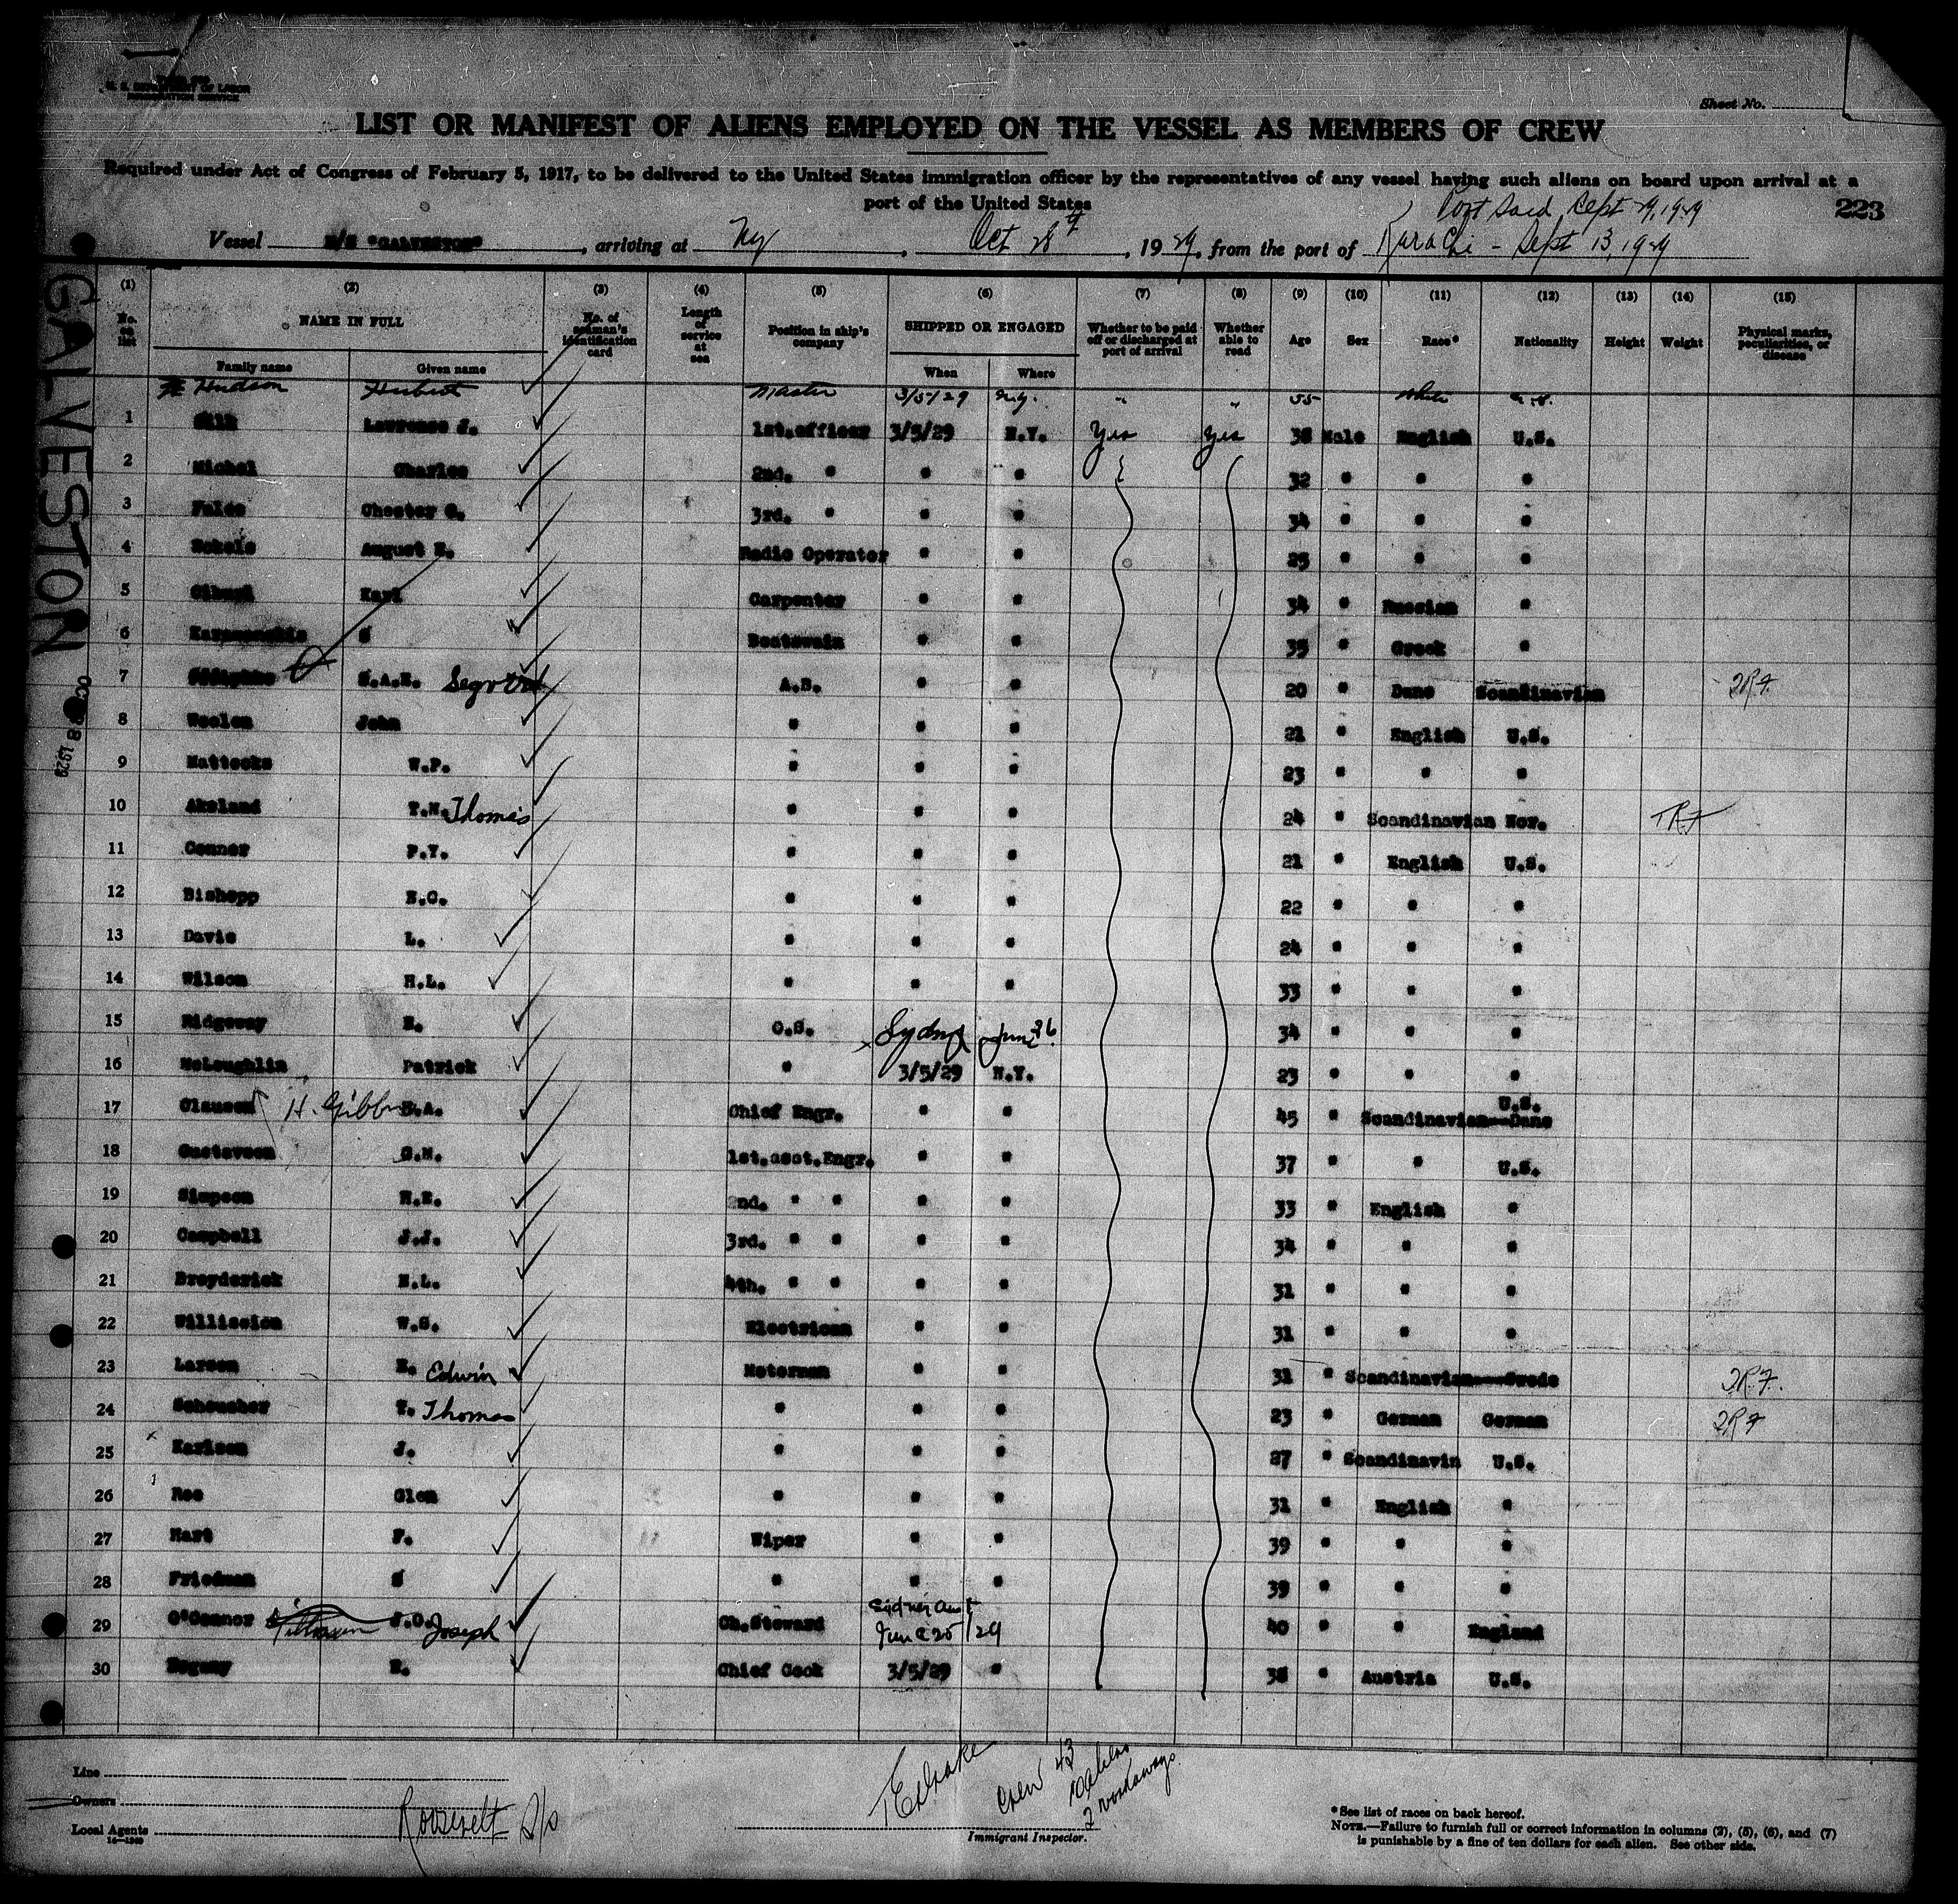 U. S. DEPARTMENT OF LABOR
IMMIGRATION SERVICE
Sheet No.
LIST OR MANIFEST OF ALIENS EMPLOYED ON THE VESSEL AS MEMBERS OF CREW
Required under Act of Congress of February 5, 1917, to be delivered to the United States immigration officer by the representatives of any vessel having such aliens on board upon arrival at a
port of the United States
Port Said, Sept 29, 1929
223
Vessel M/S "GALVESTON", arriving at Ny, Oct 28th, 1929, from the port of Karachi - Sept 13, 1929
GALVESTON
OCT 28 1929
(1) (2) (3) (4) (5) (6) (7) (8) (9) (10) (11) (12) (13) (14) (15)
No. on list NAME IN FULL No. of seaman's identification card Length of service at sea Position in ship's company SHIPPED OR ENGAGED Whether to be paid off or discharged at port of arrival Whether able to read Age Sex Race* Nationality Height Weight Physical marks, peculiarities, or disease
Family name Given name When Where
Hudson Herbert Master 3/5/29 N.Y. " " 55 White U.S.
1 Lawrence J. 1st.officer 3/5/29 N.Y. Yes Yes 38 Male English U.S.
2 Michel Charles 2nd. " " " 32 " " "
3 Chester 3rd. " " " 34 " " "
4 August Radio Operator " " 25 " " "
5 Karl Carpenter " " 34 " Russian "
6 Boatswain " " 35 " Greek "
7 S.A.E. A.B. " " 20 " Dane Scandinavian
8 Woolen John " " " 21 " English U.S.
9 Mattocks W.P. " " " 23 " " "
10 Akeland T.N. Thomas " " " 24 " Scandinavian Nor.
11 Conner P.Y. " " " 21 " English U.S.
12 Bishopp E.C. " " " 22 " " "
13 Davis L. " " " 24 " " "
14 Wilson H.L. " " " 33 " " "
15 Ridgeway E. O.S. Sydney June 26 34 " " "
16 McLoughlin Patrick " 3/5/29 N.Y. 23 " " "
17 Clausen H. Gibbs Chief Engr. " " 45 " Scandinavian--Dane U.S.
18 Gustavson G.N. 1st.asst.Engr. " " 37 " " U.S.
19 Simpson H.E. 2nd. " " " " 33 " English "
20 Campbell J.J. 3rd. " " " " 34 " " "
21 Broyderick E.L. 4th. " " " " 31 " " "
22 W.S. Electrican " " 31 " " "
23 Larson E. Edwin Motorman " " 31 " Scandinavian--Swede
24 T. Thomas " " " 23 " German German
25 Karlson J. " " " 27 " Scandinavin U.S.
26 Roe Glen " " " 31 " English "
27 Hart F. Wiper " " 39 " " "
28 Friedman S " " " 39 " " "
29 O'Connor J.O. Joseph Ch.Steward Sydney Aust June 25/29 40 " " England
30 E. Chief Cook 3/5/29 " 38 " Austria U.S.
Line
Owners
Local Agents Roosevelt S/S
14-1240
Crew 43
2 workaways
Immigrant Inspector.
*See list of races on back hereof.
NOTE.—Failure to furnish full or correct information in columns (2), (5), (6), and (7)
is punishable by a fine of ten dollars for each alien. See other side.